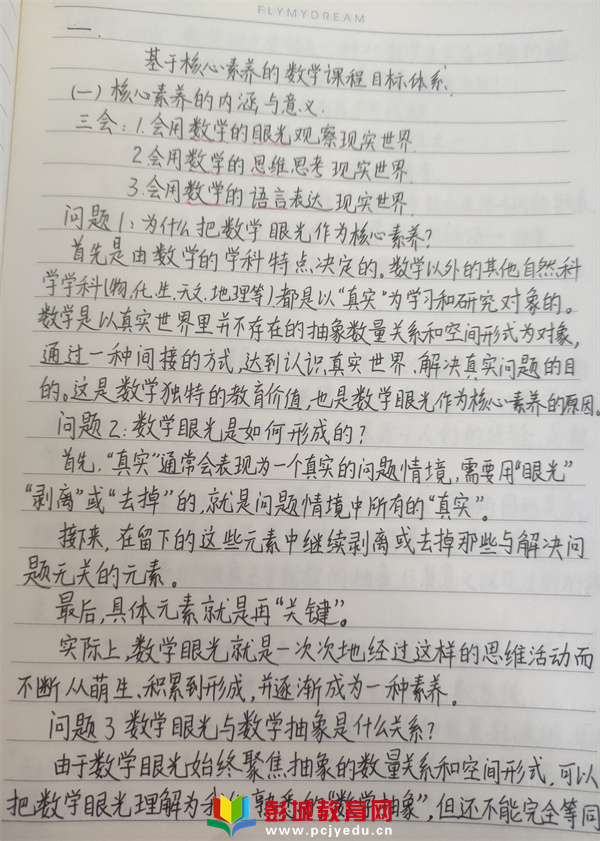 FLYMYDREAM
一.
基于核心素养的数学课程目标体系.
(一)核心素养的内涵与意义.
三会:1.会用数学的眼光观察现实世界.
2.会用数学的思维思考现实世界.
3.会用数学的语言表达现实世界.
问题1:为什么把数学眼光作为核心素养?
首先是由数学的学科特点决定的。数学以外的其他自然科
学学科(物.化.生.天文.地理等)都是以“真实”为学习和研究对象的。
数学是以真实世界里并不存在的抽象数量关系和空间形式为对象,
通过一种间接的方式,达到认识真实世界、解决真实问题的目
的。这是数学独特的教育价值,也是数学眼光作为核心素养的原因。
问题2:数学眼光是如何形成的?
首先,“真实”通常会表现为一个真实的问题情境,需要用“眼光”
“剥离”或“去掉”的,就是问题情境中所有的“真实”。
接下来,在留下的这些元素中继续剥离或去掉那些与解决问
题无关的元素。
最后,具体元素就是再“关键”。
实际上,数学眼光就是一次次地经过这样的思维活动而
不断从萌生、积累到形成,并逐渐成为一种素养。
问题3数学眼光与数学抽象是什么关系?
由于数学眼光始终聚焦抽象的数量关系和空间形式,可以
把数学眼光理解为我们熟悉的“数学抽象”,但还不能完全等同
彭城教育网
www.pcjyedu.cn